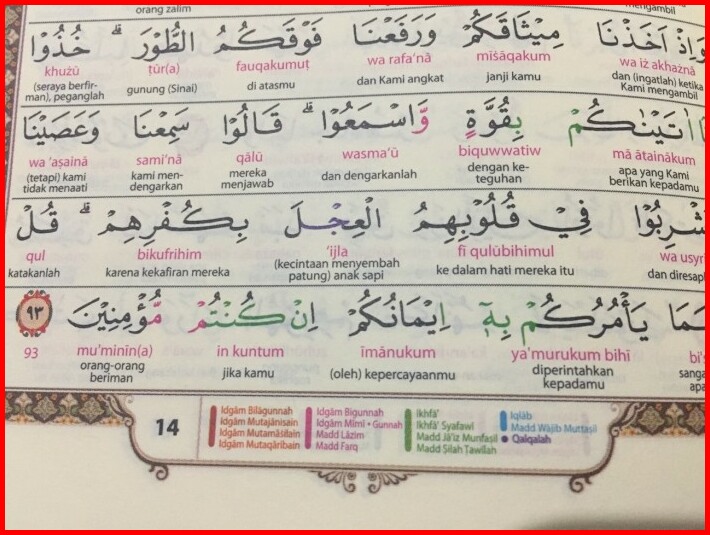 orang zalim
mengambil
وَاِذْ اَخَذْنَا مِيْثَاقَكُمْ وَرَفَعْنَا فَوْقَكُمُ الطُّوْرَ ۗ خُذُوْا
wa iż akhażnā mīṡāqakum wa rafa'nā fauqakumuṭ ṭūr(a) khużū
dan (ingatlah) ketika Kami mengambil janji kamu dan Kami angkat di atasmu gunung (Sinai) (seraya berfirman), peganglah
اٰتَيْنٰكُمْ بِقُوَّةٍ وَّاسْمَعُوْا ۗ قَالُوْا سَمِعْنَا وَعَصَيْنَا
mā ātainākum biquwwatiw wasma'ū qālū sami'nā wa 'aṣainā
apa yang Kami berikan kepadamu dengan keteguhan dan dengarkanlah mereka menjawab kami mendengarkan (tetapi) kami tidak menaati
فِيْ قُلُوْبِهِمُ الْعِجْلَ بِكُفْرِهِمْ ۗ قُلْ
wa usyr fī qulūbihimul 'ijla bikufrihim qul
dan diresap ke dalam hati mereka itu (kecintaan menyembah patung) anak sapi karena kekafiran mereka katakanlah
يَأْمُرُكُمْ بِهٖٓ اِيْمَانُكُمْ اِنْ كُنْتُمْ مُّؤْمِنِيْنَ ٩٣
ya'murukum bihī īmānukum in kuntum mu'minīn(a) 93
diperintahkan kepadamu (oleh) kepercayaanmu jika kamu orang-orang beriman
14
Idgām Bilāgunnah
Idgām Mutajānisain
Idgām Mutamāṡilain
Idgām Mutaqāribain
Idgām Bigunnah
Idgām Mīmī • Gunnah
Madd Lāzim
Madd Farq
Ikhfā'
Ikhfā' Syafawī
Madd Jā'iz Munfaṣil
Madd Ṣilah Ṭawīlah
Iqlāb
Madd Wājib Muttaṣil
Qalqalah